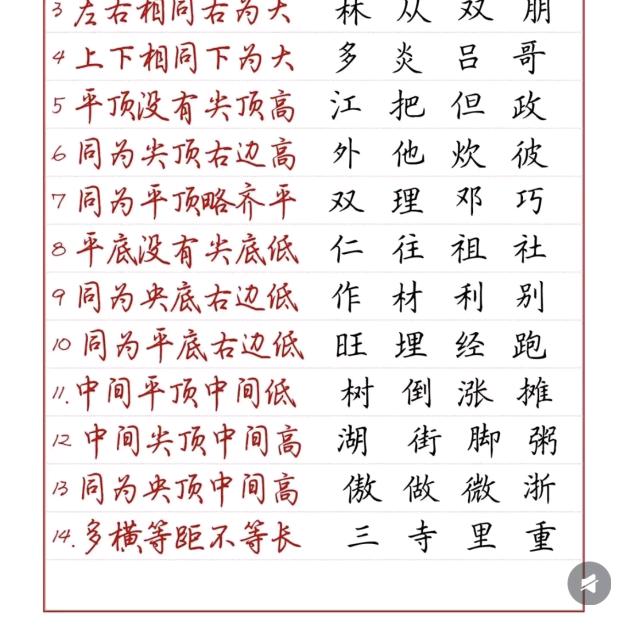 3 左右相同右为大 林 从 双 朋
4 上下相同下为大 多 炎 吕 哥
5 平顶没有尖顶高 江 把 但 政
6 同为尖顶右边高 外 他 炊 彼
7 同为平顶略齐平 双 理 邓 巧
8 平底没有尖底低 仁 往 祖 社
9 同为央底右边低 作 材 利 别
10 同为平底右边低 旺 埋 经 跑
11.中间平顶中间低 树 倒 涨 摊
12 中间尖顶中间高 湖 街 脚 粥
13 同为央顶中间高 傲 做 微 浙
14.多横等距不等长 三 寺 里 重